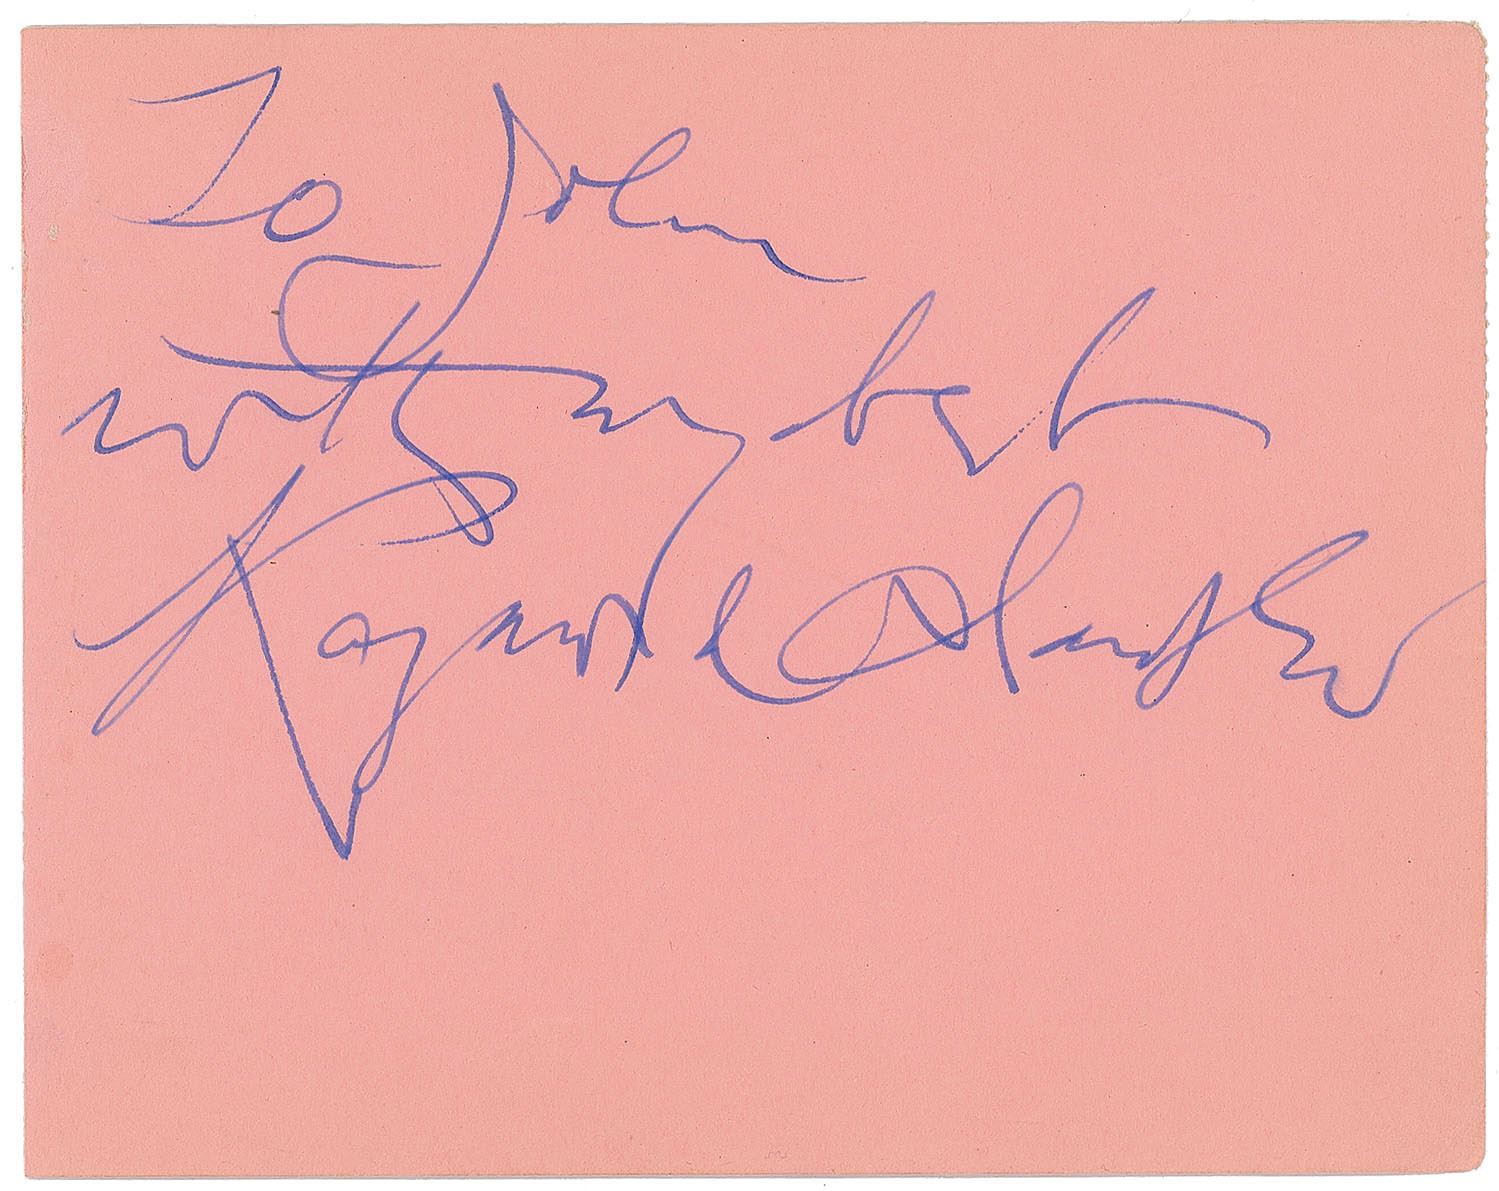 To John
with my best
Raymond Chandler